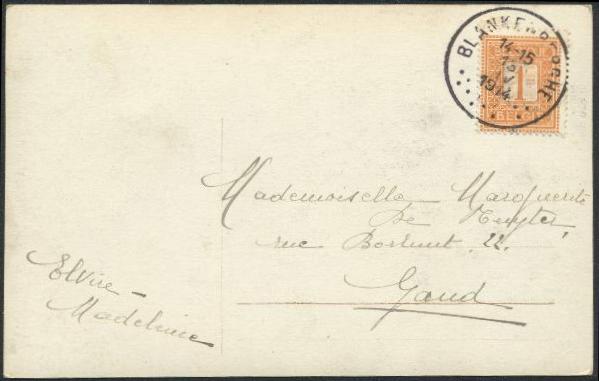 BLANKENBERGHE
14-15
13
1914
1
BELGI
Mademoiselle Marguerite
De Ruyter,
rue Borluut 22.
Gand
Elvire -
Madeleine